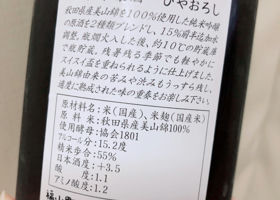 ひやおろし
秋田県産美山錦を100%使用した純米吟醸
の原酒を2種類ブレンドし、15%前半迄加水
調整、瓶燗火入した後、約10℃の貯蔵庫
で貯蔵。残暑残る季節でも軽やかに
スイスイ盃を重ねられるように仕上げました。
美山錦由来の苦みや渋みもうっすら残し、
適度に熟成された味の重奏をお楽しみ下さい。
原材料名:米(国産)、米麹(国産米)
原料米:秋田県産美山錦100%
使用酵母:協会1801
アルコール分:15.2度
精米歩合:55%
日本酒度:+3.5
酸度:1.1
アミノ酸度:1.2